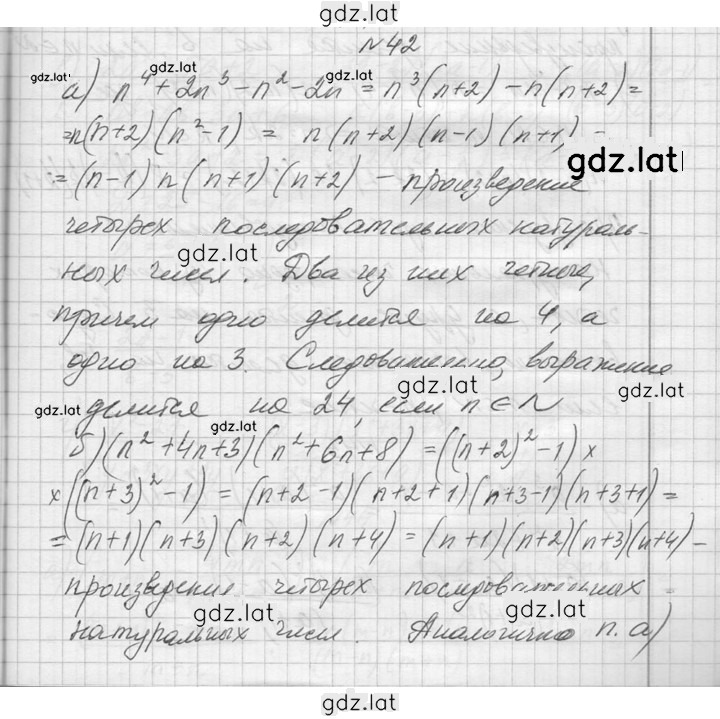 gdz.lat
№42
gdz.lat gdz.lat gdz.lat
а) n⁴+2n³-n²-2n = n³(n+2)-n(n+2)=
=n(n+2)(n²-1) = n(n+2)(n-1)(n+1) =
gdz.lat
=(n-1)n(n+1)(n+2) - произведение
четырех последовательных натураль-
gdz.lat
ных чисел. Два из них четные,
причем одно делится на 4, а
одно на 3. Следовательно, выражение
gdz.lat gdz.lat
делится на 24, если n∈N
gdz.lat gdz.lat
б)(n²+4n+3)(n²+6n+8) =((n+2)²-1)×
×((n+3)²-1) = (n+2-1)(n+2+1)(n+3-1)(n+3+1)=
=(n+1)(n+3)(n+2)(n+4)=(n+1)(n+2)(n+3)(n+4)-
произведение четырех последовательных
gdz.lat gdz.lat
натуральных чисел. Аналогично п.а)
gdz.lat